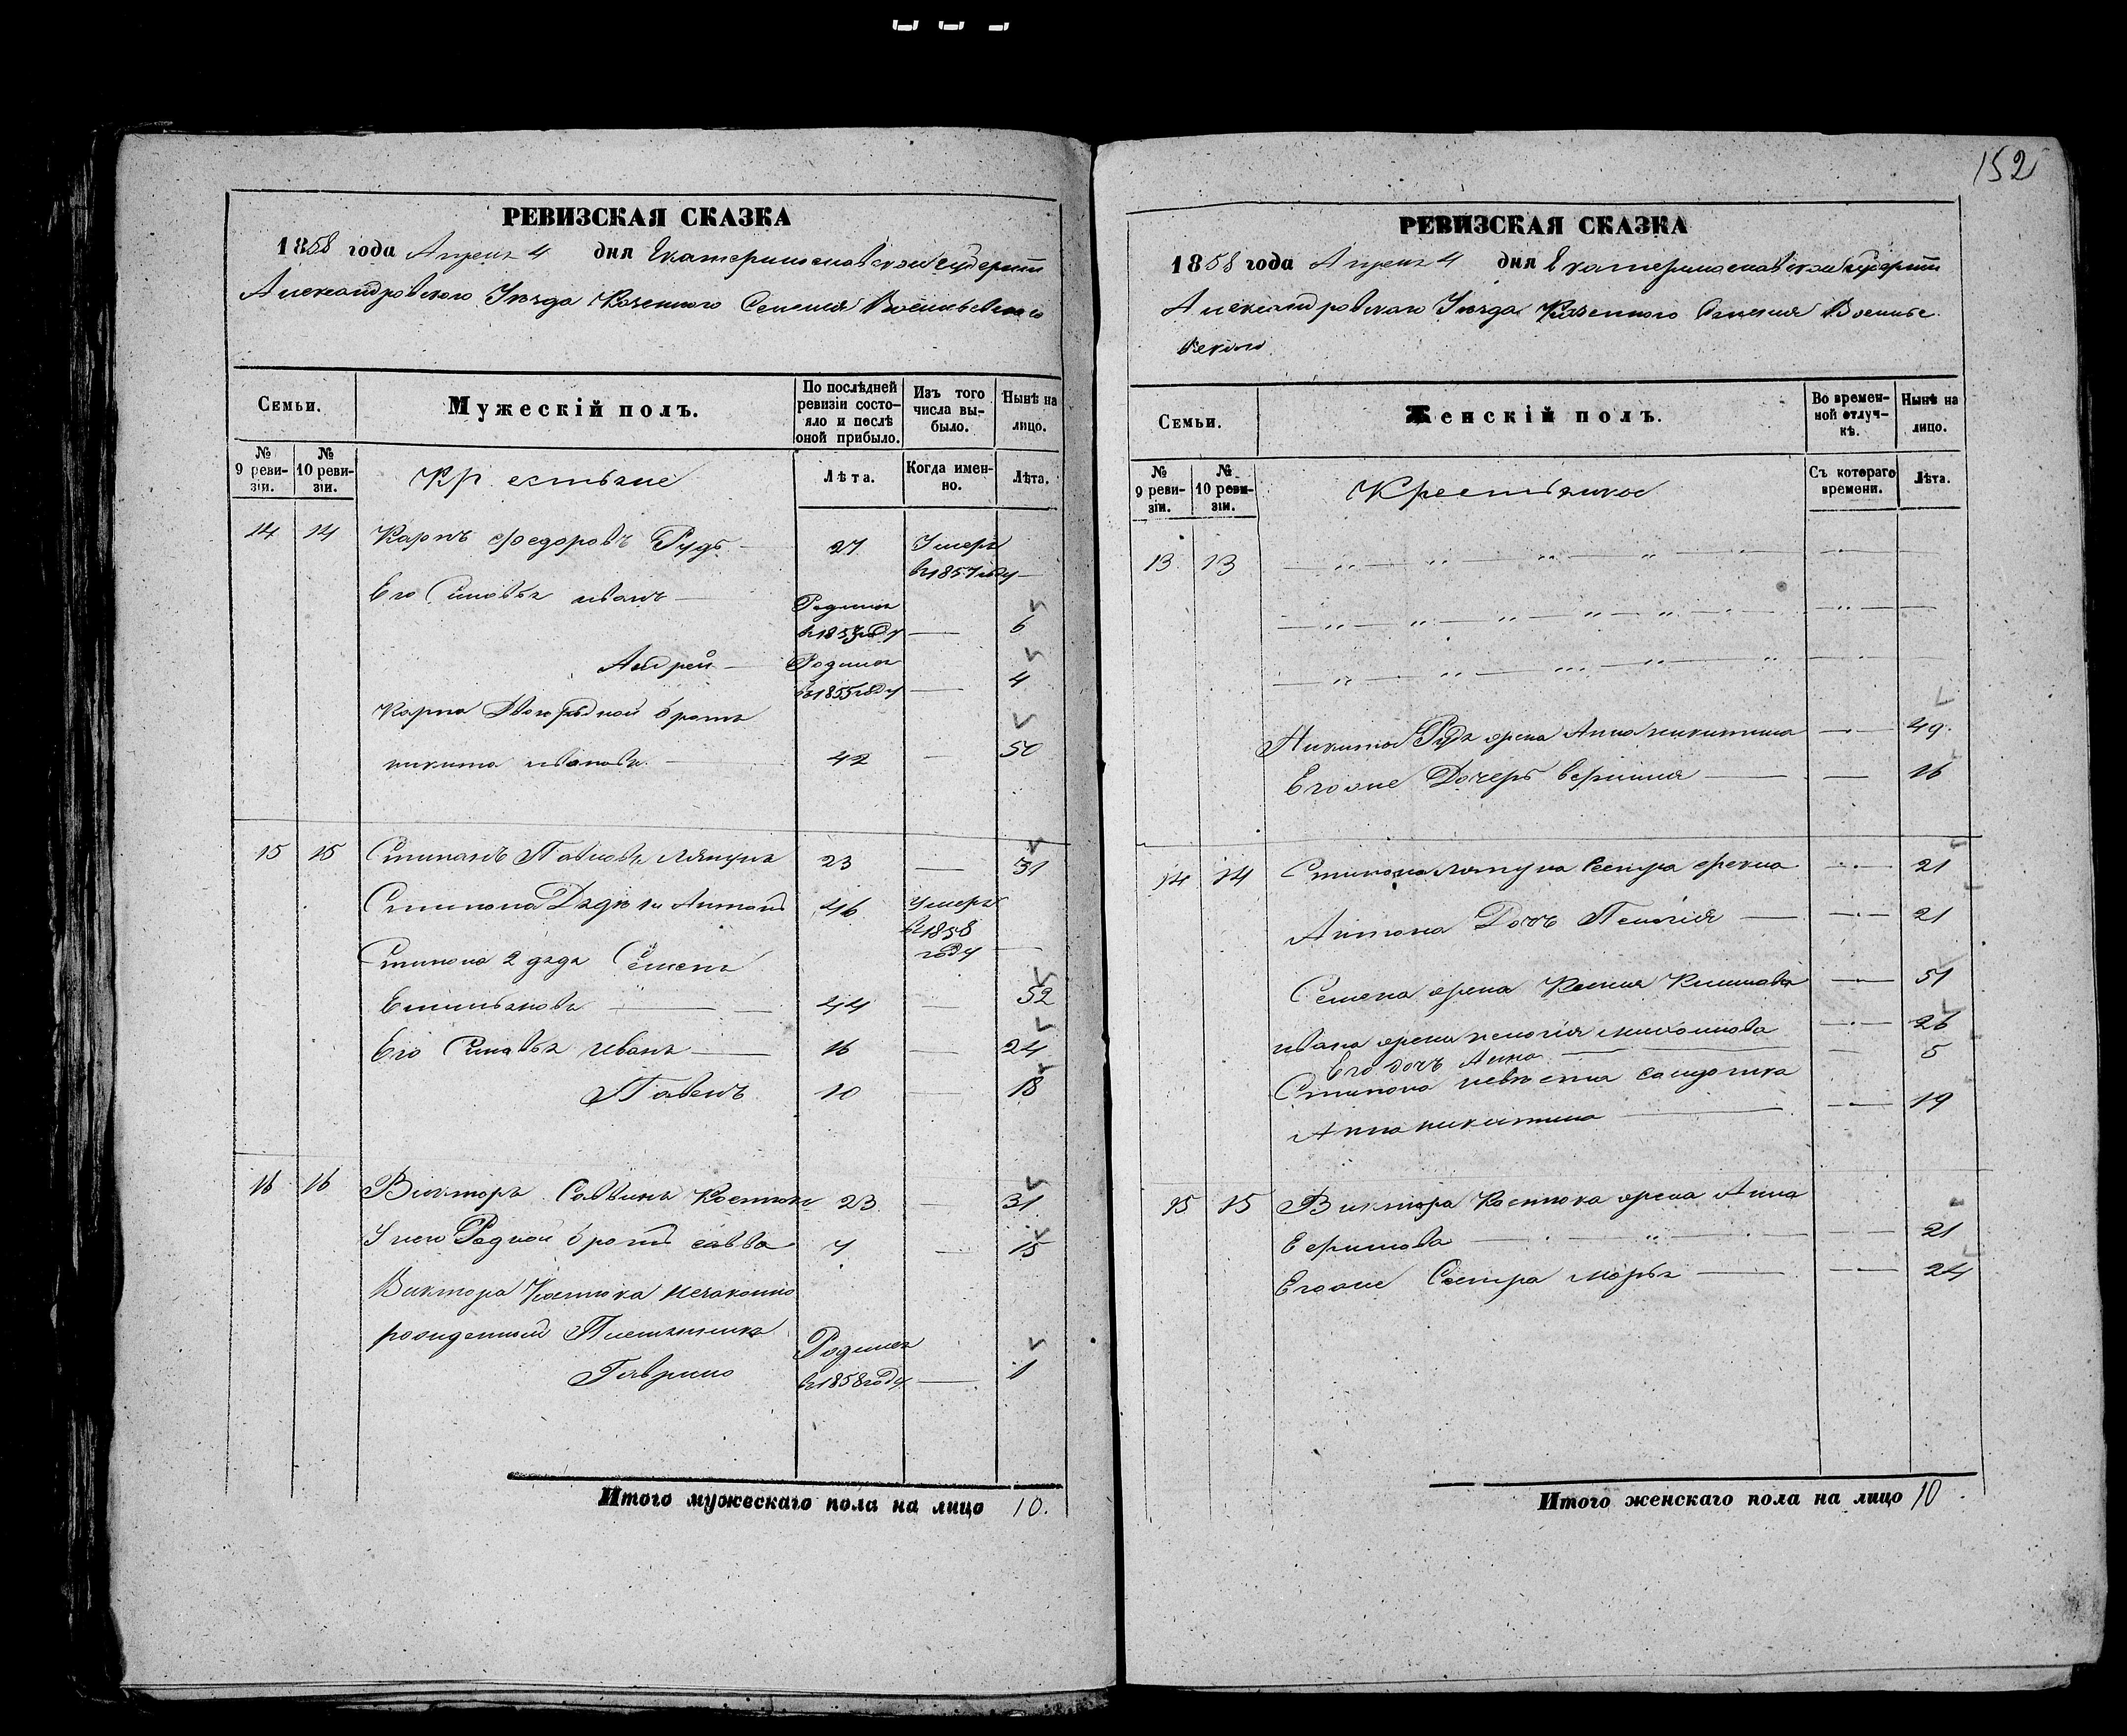 152
РЕВИЗСКАЯ СКАЗКА
1858 года Апреля 4 дня Екатеринославской губернии
Александровского Уезда Казенного Селения
Семьи.
Мужескій полъ.
По послѣдней ревизіи состояло и послѣ оной прибыло.
Изъ того числа выбыло.
Нынѣ на лицо.
№ 9 ревизіи.
№ 10 ревизіи.
Крестьяне
Лѣта.
Когда именно.
Лѣта.
14 14 Карпъ Федоровъ Рудь 27 Умеръ
в 1857 году
Его Сыновья иванъ Родился
в 1853 году 6
Андрей Родился
в 1855 году 4
Карпа Двоюродной братъ
никита ивановъ 42 50
15 15 Стипанъ Павловъ Ляпунъ 23 31
Стипана Дядя 1й Антонъ 46 Умеръ
в 1858
году
Стипана 2 дядя Семенъ
Емильяновъ 44 52
Его Сыновья иванъ 16 24
Павелъ 10 18
16 16 Викторъ Саввинъ Костюкъ 23 31
У него Родной братъ савва 7 15
Виктора Костюка незаконно
рожденный Племянникъ
Гаврило Родился
в 1858 году 1
Итого мужескаго пола на лицо 10.
РЕВИЗСКАЯ СКАЗКА
1858 года Апреля 4 дня Екатеринославской губернии
Александровского Уезда Казенного Селения
Семьи.
Женскій полъ.
Во временной отлучкѣ.
Нынѣ на лицо.
№ 9 ревизіи.
№ 10 ревизіи.
Крестьянки
Съ котораго времени.
Лѣта.
13 13
Никиты Рудя жена Анна никитина 49
Егоже Дочерь 16
14 14 Стипана Ляпуна Сестра 21
Антона Дочь Пелагия 21
Семена жена Ксения 51
ивана жена пелагия 26
Его дочь Анна 5
Стипана невестка салдатка
Анна никитина 19
15 15 Виктора Костюка жена Анна
Ефимова 21
Егоже Сестра марья 24
Итого женскаго пола на лицо 10.